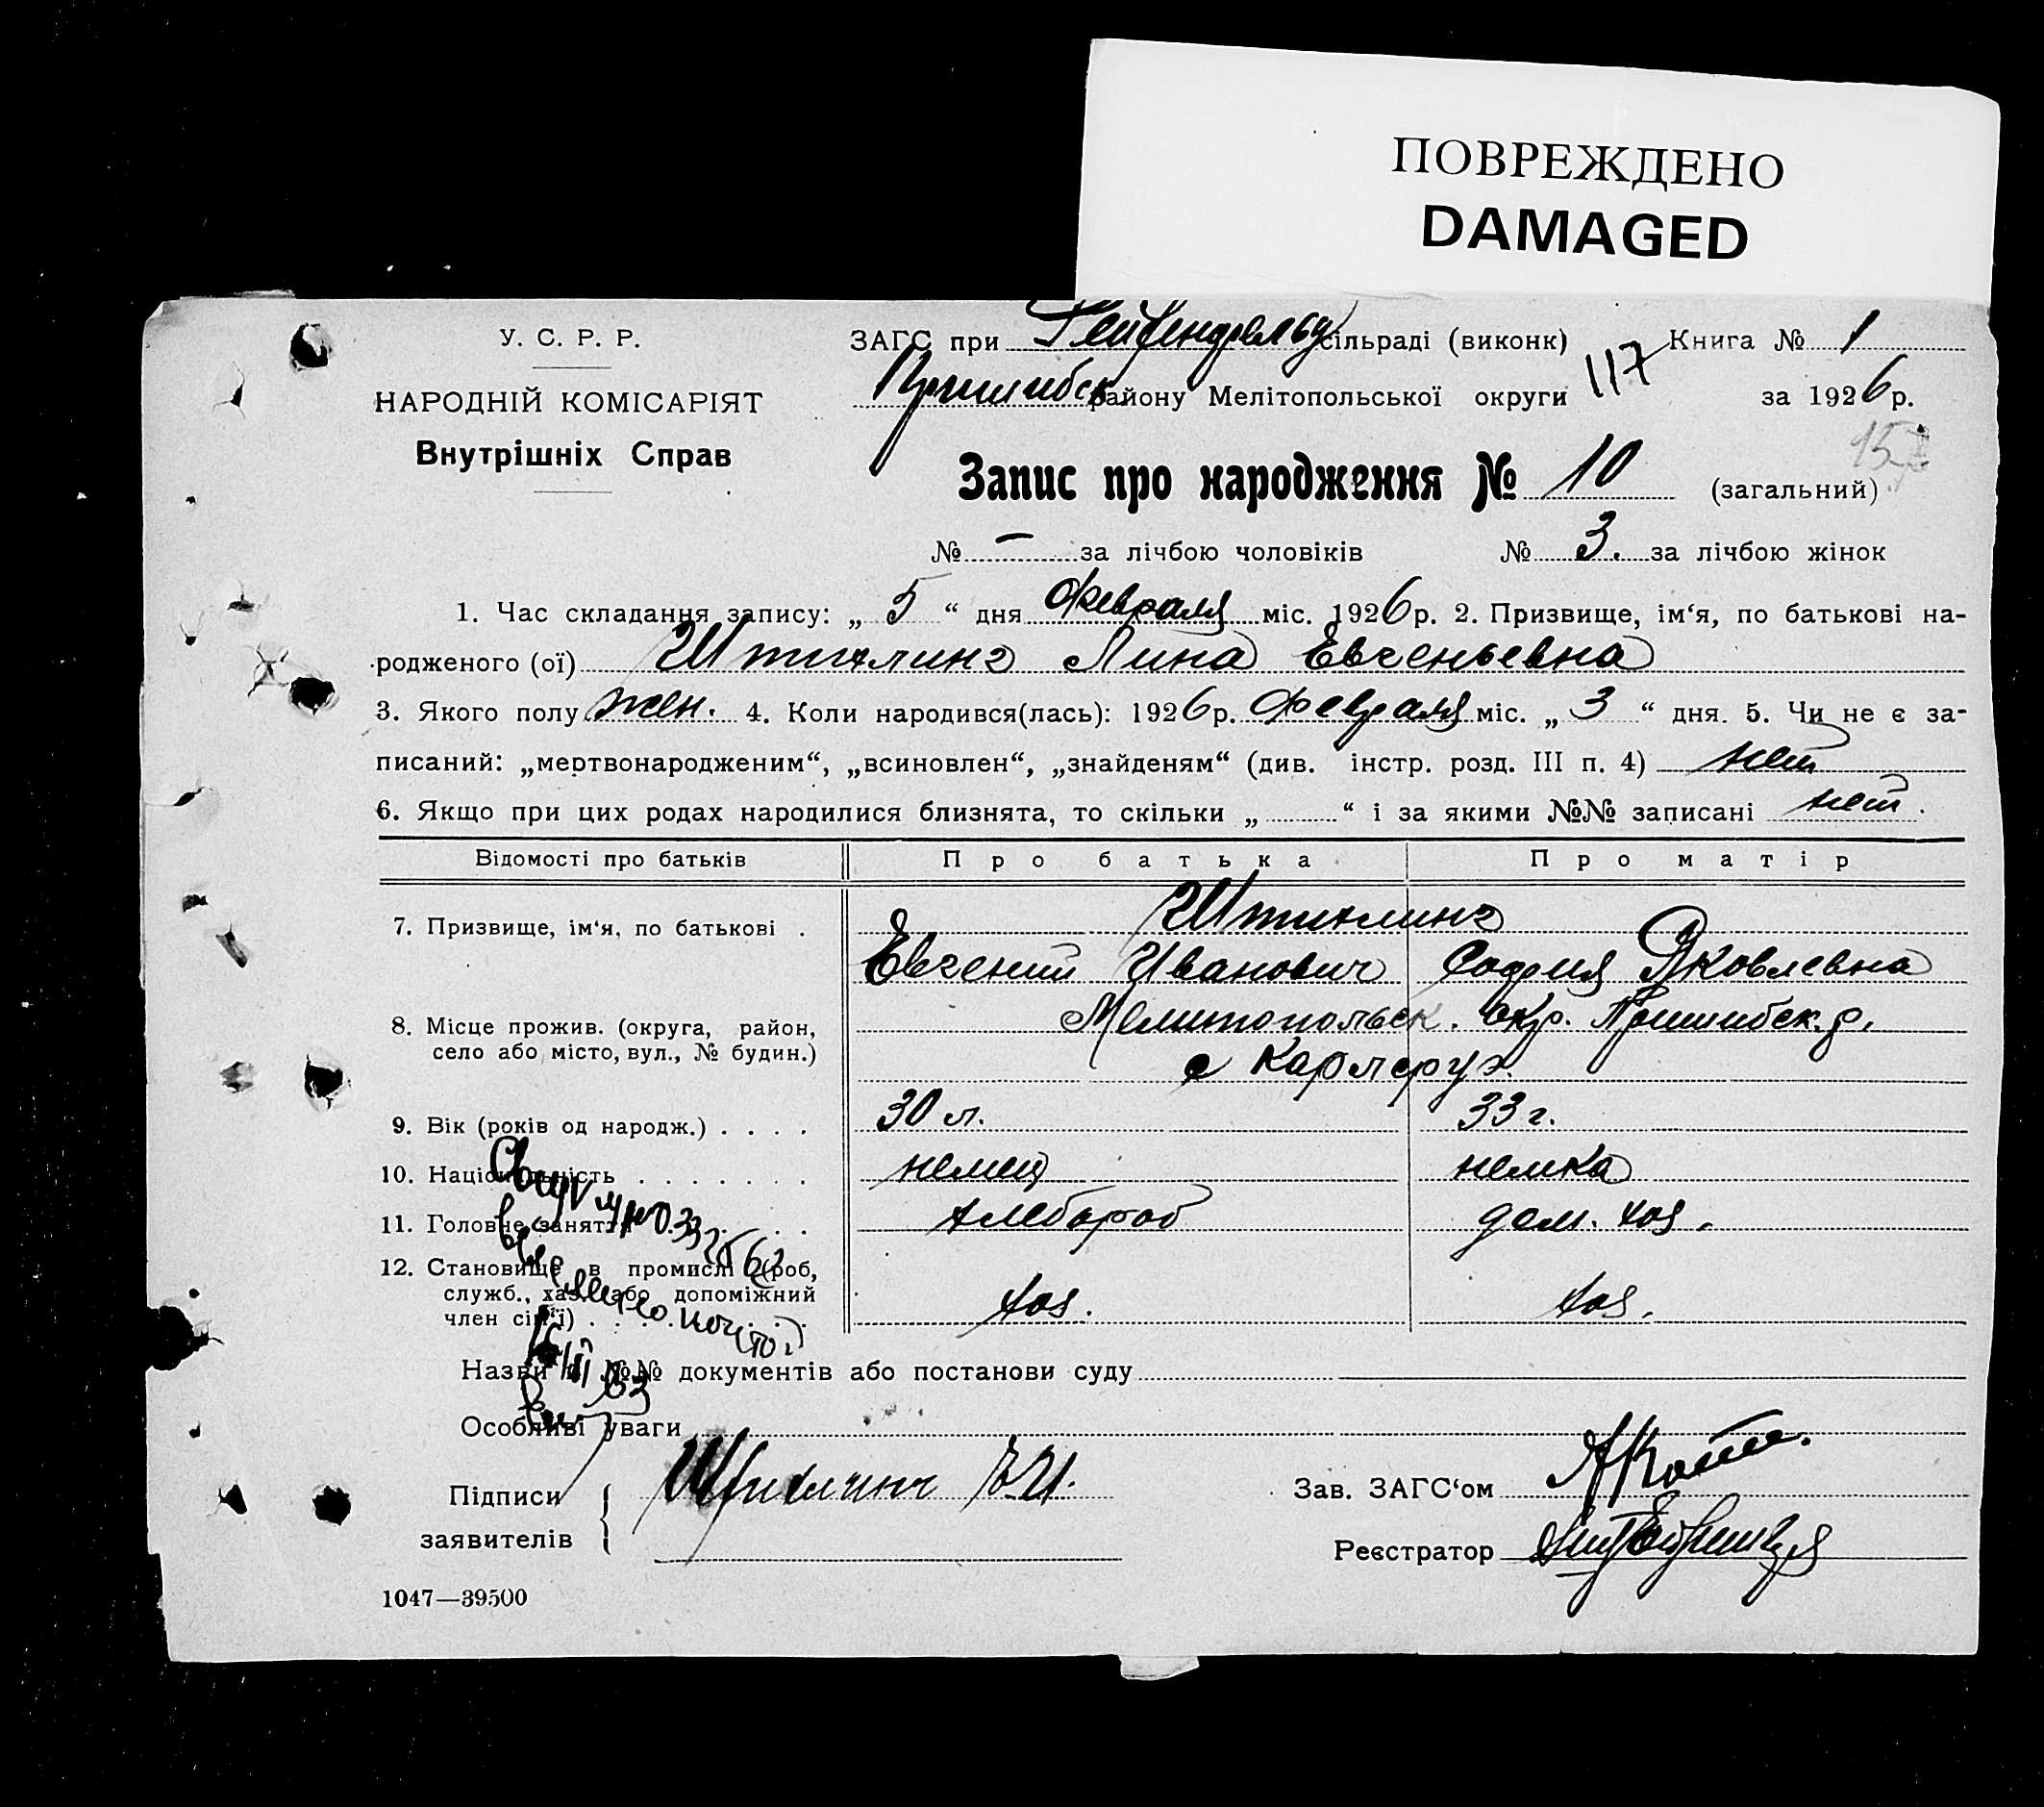 ПОВРЕЖДЕНО
DAMAGED
У. С. Р. Р.
НАРОДНІЙ КОМІСАРІЯТ
Внутрішніх Справ
ЗАГС при сільраді (виконк) Книга № 1
Пришибск району Мелітопольської округи 117 за 1926 р.
157
Запис про народження № 10 (загальний)
№ — за лічбою чоловіків № 3. за лічбою жінок
1. Час складання запису: „ 5 “ дня Февраля міс. 1926 р. 2. Призвище, ім‘я, по батькові на-
родженого (ої) Штихлинг Лина Евгеньевна
3. Якого полу жен. 4. Коли народився(лась): 1926 р. Февраля міс. „ 3 “ дня. 5. Чи не є за-
писаний: „мертвонародженим“, „всиновлен“, „знайденям“ (див. інстр. розд. III п. 4) нет
6. Якщо при цих родах народилися близнята, то скільки „ “ і за якими №№ записані нет.
Відомості про батьків Про батька Про матір
7. Призвище, ім‘я, по батькові . Штихлинг
Евгений Иванович София Яковлевна
8. Місце прожив. (округа, район, село або місто, вул., № будин.) Мелитопольск. окр. Пришибск. р.
с Карлсруэ.
9. Вік (років од народж.) . . . . 30 л. 33 г.
10. Національність . . . . . . . немец немка
11. Головне заняття . . . . хлебороб дом. хоз.
12. Становище в промислі (роб,
служб., хаз. або допоміжний
член сім‘ї) . . . . хоз. хоз.
Назви і №№ документів або постанови суду
Особливі уваги
Підписи
заявителів
Штихлинг Е.И.
Зав. ЗАГС‘ом
Реєстратор
1047—39500